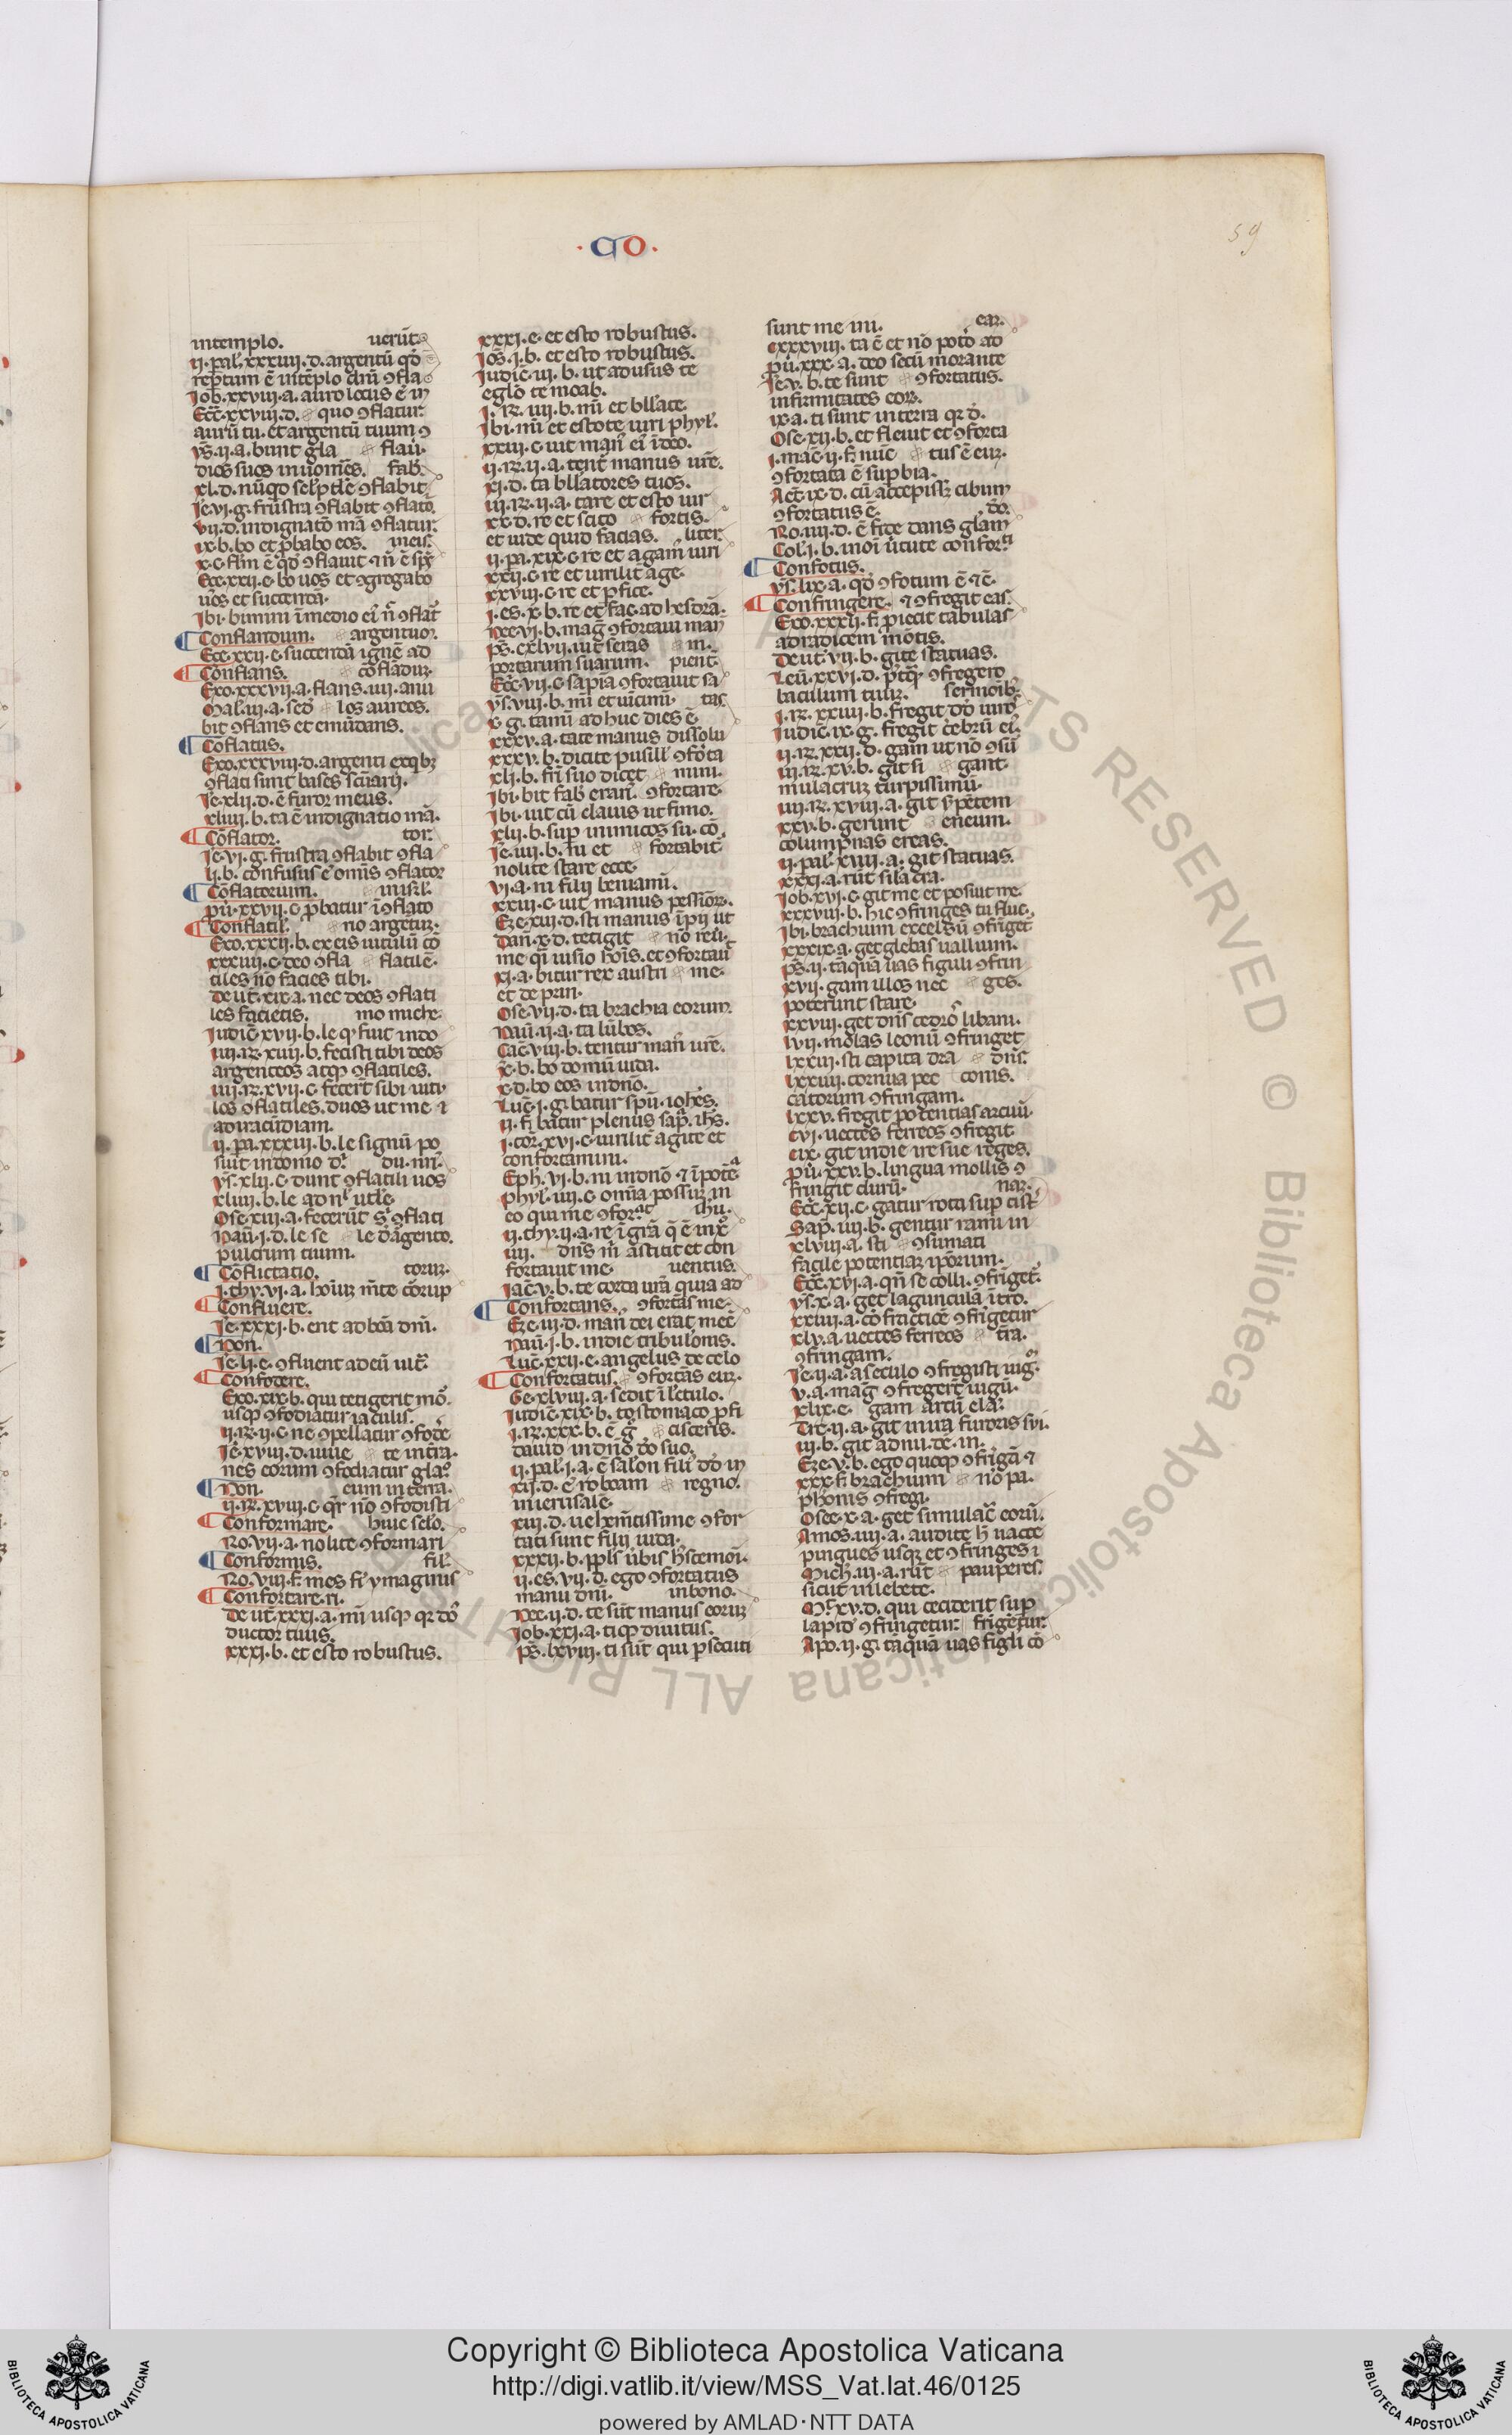 ·CO·
59
in templo. uerūt.
ij. pal. xxxiiij. d. argentū qđ
reptum ē in tēplo dn̄i ꝯfla
Iob. xxviij. a. auro locus ē in
Ecc̄. xxviij. d. quo ꝯflatur
aurū tu. et argentū tuum ꝯ
ys̄. ij. a. bunt gla flaū.
dios suos in uom̄es. fab̄.
xl. d. nūqd sclp̄tle ꝯflabit
Ie. vj. g. frustra ꝯflabit ꝯflato.
vij. d. indignatō mā ꝯflatur.
ix. b. bo et p̄babo eos. meis
Eze. xxij. e. bo uos et ꝯgregabo
uos et succenda.
Conflandum. argentuom.
Eze. xxij. e. succendā ignē ad
Conflans. cōfladur.
Exo. xxxvij. a. flans. iiij. anu
Mal. iij. a. sed los aureos.
bit ꝯflans et emūdans.
Cōflatus.
Exo. xxxviij. d. argenti ex qbꝫ
ꝯflati sunt bases sctuarij.
Ie. xlij. d. ē furor meus.
xliiij. b. ta ē indignatio mā.
Cōflator. tor.
Ie. vj. g. frustra ꝯflabit ꝯfla
li. b. confusus ē omīs ꝯflator
Cōflatorium. misil.
pū. xxvij. c. pbatur ī ꝯflato
Conflatil. no argētiꝫ.
Exo. xxxij. b. ex eis uitulū cō
xxxiiij. c. deo ꝯfla flatilē.
tiles nō facies tibi.
deut̄. xix. a. nec deos ꝯflati
les facietis. mo miche.
Iudic̄. xvij. b. le qꝫ fiut indo
iij. rꝫ. xiiij. b. fecisti tibi deos
argenteos atqꝫ ꝯflatiles.
iiij. rꝫ. xvij. c. fecert̄ sibi uitu
los ꝯflatiles. duos ut me. ⁊
ad iracūdiam.
ij. pa. xxxiij. b. le signū po
suit in domo dī. du. niī.
ys̄. xlij. c. dunt ꝯflatili uos
xliiij. b. le ad nl̄ utle.
Ose. xiij. a. fecerūt s̄ ꝯflati
Naū. i. d. le se le d argento.
pulcrum tuum.
Cōflictatio. toruꝫ.
i. thy. vj. a. hoīuꝫ mēte cōrup
Confluere.
Ie. xxxi. b. ent ad bōa dn̄i.
Non.
Ie. li. e. ꝯfluent ad eū ultr̄.
Confodere.
Exo. xix. b. qui tetigerit mō.
usqꝫ ꝯfodiatur iaculis.
ij. rꝫ. ij. c. ne ꝯpellatur ꝯfode
Ie. xviij. d. uiue te intra.
nes eorum ꝯfodiatur gla.
Non. eum in terra.
ij. rꝫ. xviij. c. qr̄ nō ꝯfodisti
Conformare. huic sclo.
Ro. vij. a. nolite ꝯformari
Conformis. fil.
Ro. viij. f. mes fī ymaginis
Confortare. ri.
deut̄. xxxi. a. mī usqꝫ qꝫ dō
ductor tuus.
xxxi. b. et esto robustus.
xxxi. e. et esto robustus.
Ios̄. i. b. et esto robustus.
Iudic̄. iij. b. ut adusus te
eglō te moab.
i. rꝫ. iiij. b. mī et bllate.
Ibi. mī et estote uiri phyl.
xxiij. c. uit man̄ eī ī deo.
ij. rꝫ. ij. a. tent̄ manus ur̄e.
xi. d. ta bllatores tuos.
iij. rꝫ. ij. a. tare et esto uir
xx. d. re et scito fortis.
et uide quid facias. liter.
ij. pa. xix. c. re et agam̄ uiri
xxij. c. re et uirilit̄ age.
xxviij. c. re et pfice.
i. es. x. b. re et fac. ad hesdrā.
Nee. vj. b. mag̃ ꝯfortaui man
ps̄. cxlvij. uit seras m.
portarum suarum. pient.
Ecc̄. vij. c. sapīa ꝯfortauit sa
ys̄. viij. b. mī et uicimi. tas
x. g. tamū ad huc dies ē.
xxxv. a. tate manus dissolu
xxxv. b. dicite pusill ꝯforta
xli. b. fr̄i suo dicet mini.
Ibi. bit fab̄ eran̄. ꝯfortare.
Ibi. uit cū clauis ut fimo.
xlij. b. sup inimicos su. cō
Ie. iiij. b. fu et fortabit
nolite stare ecce.
vj. a. m filij beniamī.
xxiij. c. uit manus pessiōꝝ.
Eze. xiij. d. sti manus īpij ut
Dan̄. x. d. tetigit nō reu.
me qī uisio hoīs. et ꝯfortaū
xi. a. bitur rex austri me.
et de prin.
Ose. vij. d. ta brachia eorum.
Naū. ij. a. ta lūbos.
Zac̄. viij. b. tentur man̄ ur̄e.
x. b. bo domū iuda.
x. d. bo eos in dnō.
Luc̄. i. g. batur spū. iohēs.
ij. f. batur plenus sap̄. ihs̄.
i. cor̄. xvi. c. uirilit̄ agite et
confortamini.
Eph. vj. b. m in dnō. ⁊ ī potē
phyl. iiij. c. omīa possuꝫ in
eo qui me ꝯfor. chu.
ij. thy. ij. a. re ī grā q̄ ē in x̄
iiij. dn̄s m̄ astitit et con
fortauit me. uentus.
Iac̄. v. b. te corda urā quia ad
Confortans. ꝯfortās me.
Eze. iij. d. man̄ dei erat mec̄
Naū. i. b. in die tribulōnis.
Luc̄. xxij. e. angelus de celo
Confortatus. ꝯfortās eur.
Ge. xlviij. a. sedit ī lectulo.
Iudic̄. xix. b. to stomaco pfi
i. rꝫ. xxx. b. ē g̃ ciscens.
dauid in dnō dō suo.
ij. pal. i. a. ē salon fili dd in
xij. d. ē roboam regno.
in ierusalē.
xiij. d. uehem̄tissime ꝯfor
tati sunt filij iuda.
xxxij. b. ppls ūbis h̄scemōi.
ij. es. vij. d. ego ꝯfortatus
manu dn̄i. in bono.
Nee. ij. d. te sūt manus eoruꝫ
Iob. xxi. a. tiqꝫ diuitus.
ps̄. lxviij. ti sūt qui psecuti
sunt me ini. ear.
cxxxviij. ta ē et nō potō ad
pū. xxx. a. deo secū morante
Ie. v. b. te sunt ꝯfortatus.
infirmitates eoꝝ.
ix. a. ti sunt in terra qꝫ d.
Ose. xij. b. et fleuit et ꝯforta
i. mac̄. ij. f. nūc tus ē eur.
ꝯfortata ē supbia.
Act̄. ix. d. cū accepissꝫ cibum
ꝯfortatus ē. dō.
Ro. iiij. d. ē fide dans glam
Col. i. b. in oī ūtute confor.
Confotus.
ys̄. lix. a. qd ꝯfotum ē ⁊c̄.
Confringere. ⁊ ꝯfregit eas.
Exo. xxxij. f. piecit tabulas
ad radicem mōtis.
Deut̄. vij. b. gite statuas.
Leū. xxvj. d. pꝯtq̄ ꝯfregero
baculum tuuꝫ. sermōib.
i. rꝫ. xxiiij. b. fregit dd uiro
Iudic̄. ix. g. fregit cebrū eī.
ij. rꝫ. xxij. d. gam ut nō ꝯsū
iij. rꝫ. xv. b. git si gant.
mulacruꝫ turpissimū.
iiij. rꝫ. xviij. a. git spētem
xxv. b. gerunt eneum.
columpnas ereas.
ij. pal. xiiij. a. git statuas.
xxxi. a. rūt sila cra.
Iob. xvi. c. git me et posuit me
xxxviij. b. hic ꝯfringes tu fluc.
Ibi. brachium excelsū ꝯfrīget
xxxix. a. get glebas uallium.
ps̄. ij. tāquā uas figuli ꝯfrin
xvij. gam illos nec ges.
poterunt stare.
xxviij. get dn̄s cedrō libani.
lvij. molas leonū ꝯfringet
lxxiij. sti capita dra dn̄s.
lxxiiij. cornua pec conis.
catorum ꝯfringam.
lxxv. fregit potentias arcuū.
cvi. uectes ferreos ꝯfregit
cix. git in die ire sue reges.
pū. xxv. b. lingua mollis ꝯ
fringit durū. nar.
Ecc̄. xij. c. gatur rota sup cist̄
Sap̄. iiij. b. gentur rami in
xlviij. a. sti ꝯsumati
facile potentiaꝫ ipōrum.
Ecc̄. xvi. a. qn̄ se colli. ꝯfrīget.
ys̄. x. a. get lagunculā ītro.
xxiiij. a. cō fractiōe ꝯfrīgetur
xlv. a. uectes ferreos tīra.
ꝯfringam.
Ie. ij. a. a seculo ꝯfregisti iug̃
v. a. mag̃ ꝯfregert̄ iugū.
xlix. e. gam arcū elā.
Tre. ij. a. git in ira furoris sui.
iij. b. git ad nu. de. in.
Eze. v. b. ego quoqꝫ ꝯfrīgā ⁊
xxx. f. brachium nō pa.
phonis ꝯfregi.
Osee. x. a. get simulac̄ eorū.
Amos. iiij. a. audite h̄ uacce
pingues usqꝫ et ꝯfringes i
Mich. iij. a. rūt pauperes.
sicut in lebete.
Mr̄. xv. d. qui ceciderit sup
lapid ꝯfringetur. frigetur.
Apo. ij. g. tāquā uas figli cō
Copyright © Biblioteca Apostolica Vaticana
http://digi.vatlib.it/view/MSS_Vat.lat.46/0125
powered by AMLAD·NTT DATA
BIBLIOTECA APOSTOLICA VATICANA
BIBLIOTECA APOSTOLICA VATICANA